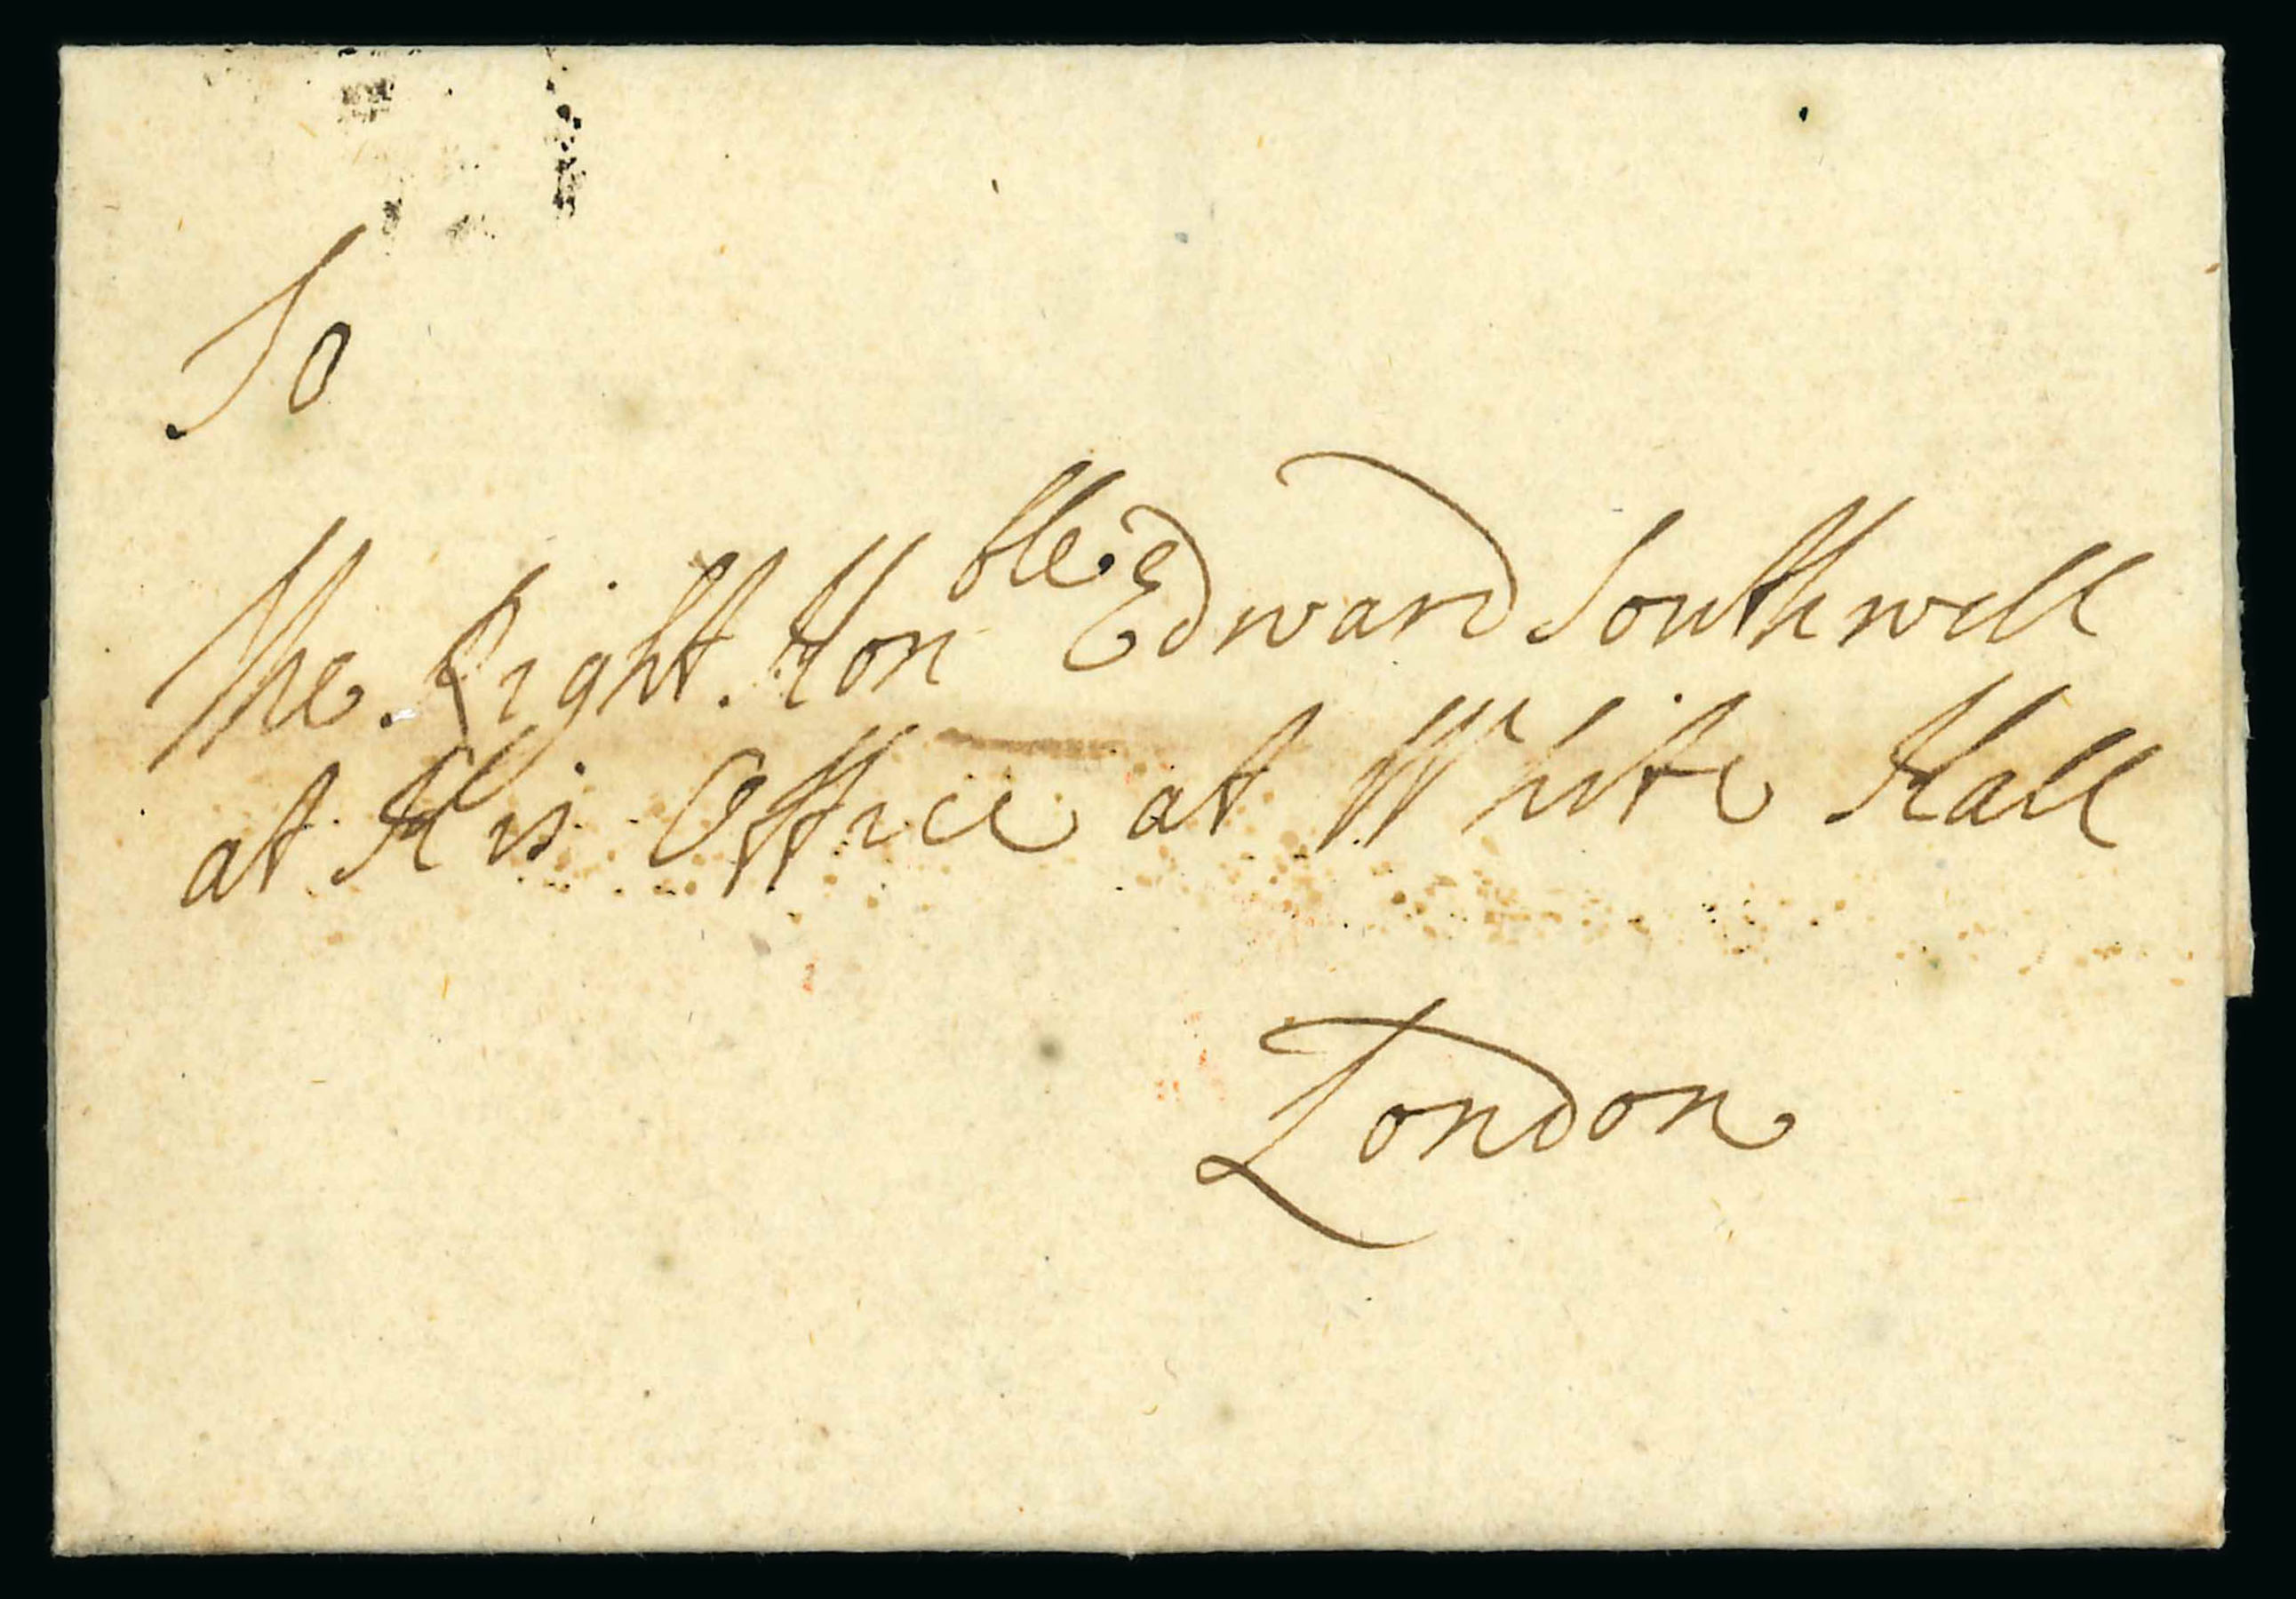 To
The. Right. Honble. Edward Southwell
at His Office at White Hall
London